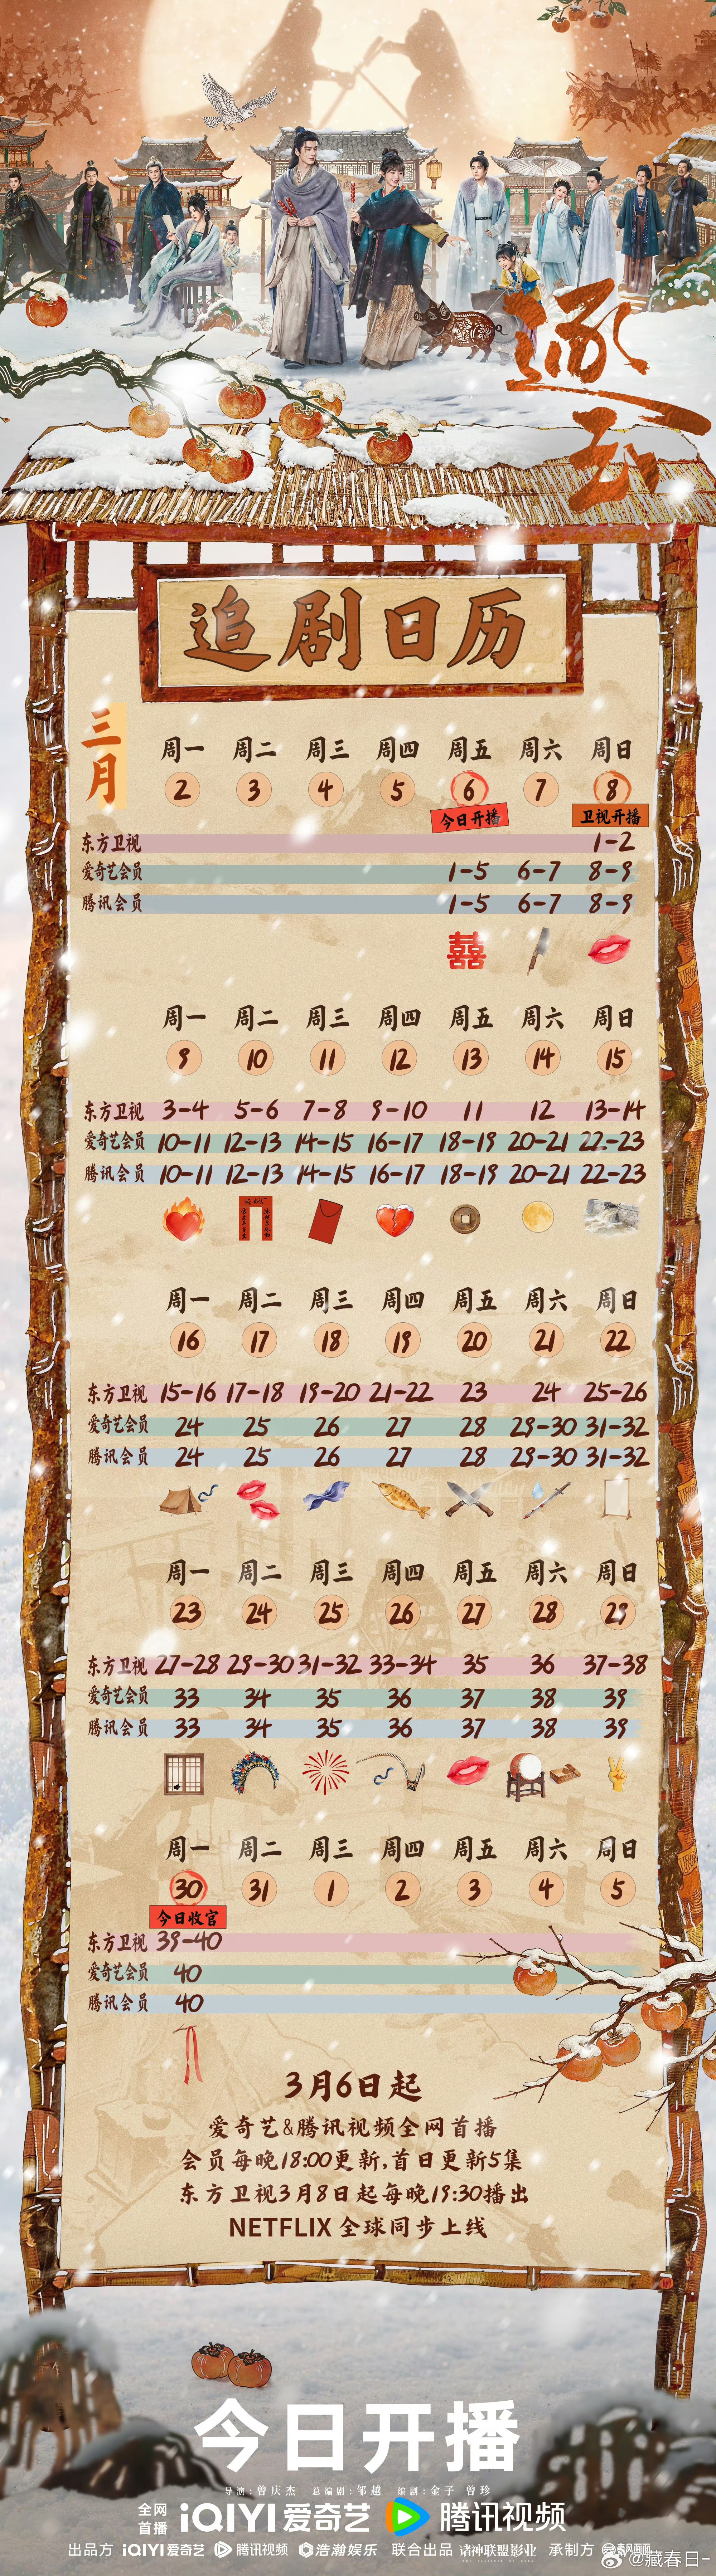 逐玉
追剧日历
三月
周一 周二 周三 周四 周五 周六 周日
2 3 4 5 6 7 8
今日开播 卫视开播
东方卫视 1-2
爱奇艺会员 1-5 6-7 8-9
腾讯会员 1-5 6-7 8-9
囍
周一 周二 周三 周四 周五 周六 周日
9 10 11 12 13 14 15
东方卫视 3-4 5-6 7-8 9-10 11 12 13-14
爱奇艺会员 10-11 12-13 14-15 16-17 18-19 20-21 22-23
腾讯会员 10-11 12-13 14-15 16-17 18-19 20-21 22-23
周一 周二 周三 周四 周五 周六 周日
16 17 18 19 20 21 22
东方卫视 15-16 17-18 19-20 21-22 23 24 25-26
爱奇艺会员 24 25 26 27 28 29-30 31-32
腾讯会员 24 25 26 27 28 29-30 31-32
周一 周二 周三 周四 周五 周六 周日
23 24 25 26 27 28 29
东方卫视 27-28 29-30 31-32 33-34 35 36 37-38
爱奇艺会员 33 34 35 36 37 38 39
腾讯会员 33 34 35 36 37 38 39
周一 周二 周三 周四 周五 周六 周日
30 31 1 2 3 4 5
今日收官
东方卫视 39-40
爱奇艺会员 40
腾讯会员 40
3月6日起
爱奇艺&腾讯视频全网首播
会员每晚18:00更新,首日更新5集
东方卫视3月8日起每晚19:30播出
NETFLIX 全球同步上线
今日开播
导演:曾庆杰 总编剧:邹越 编剧:金子 曾珍
全网首播 iQIYI 爱奇艺 腾讯视频
出品方 iQIYI 爱奇艺 腾讯视频 浩瀚娱乐 联合出品 诸神联盟影业 承制方
@藏春日-